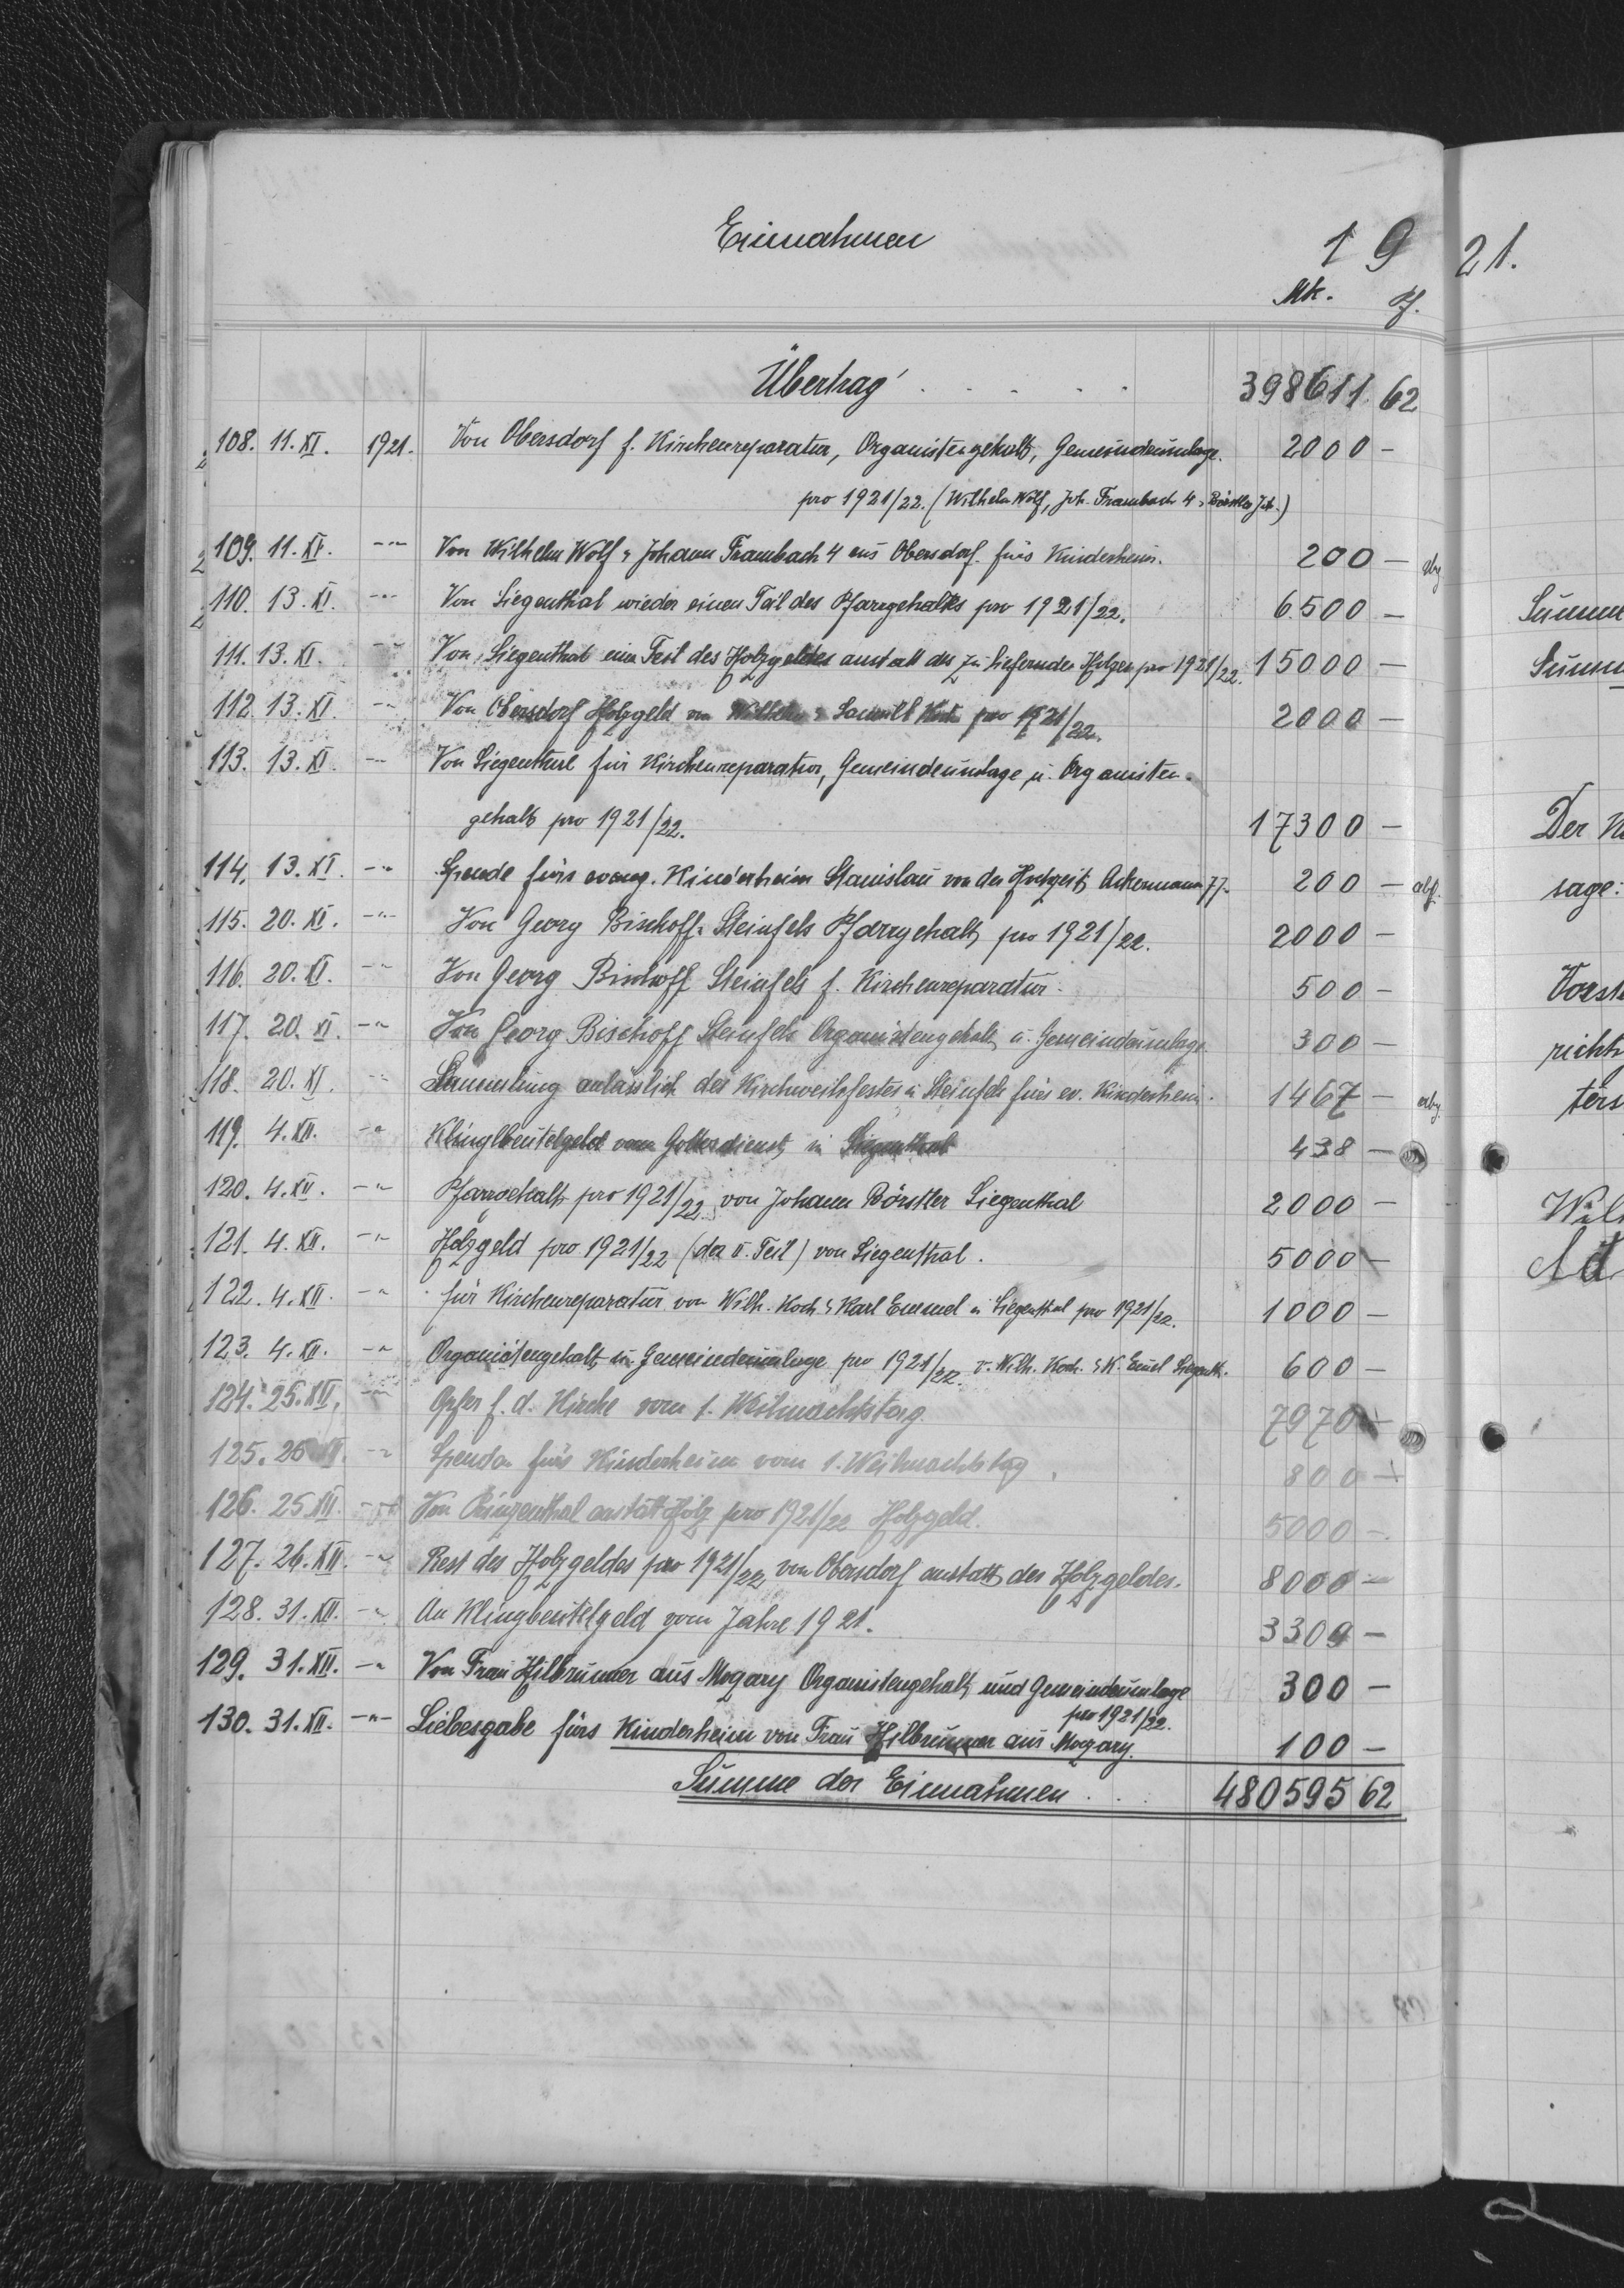 Einnahmen 1921.
Mk. Pf.
Übertrag . . . . . 398611 62
108. 11. XI. 1921. Von Obersdorf f. Kirchenreparatur, Organistengehalt, Gemeindeumlage. 2000 -
pro 1921/22. (Wilhelm Wolf, Joh. Frambach 4, Börstler Joh.)
109. 11. XI. -"- Von Wilhelm Wolf & Johann Frambach 4 aus Obersdorf. fürs Kinderheim. 200 -
110. 13. XI. -"- Von Siegenthal wieder einen Teil des Pfarrgehaltes pro 1921/22. 6500 -
111. 13. XI. -"- Von Siegenthal einen Teil des Holzgeldes anstatt des zu liefernden Holzes pro 1921/22. 15000 -
112. 13. XI. -"- Von Obersdorf Holzgeld von Wilhelm & pro 1921/22. 2000 -
113. 13. XI. -"- Von Siegenthal für Kirchenreparatur, Gemeindeumlage u. Organisten-
gehalt pro 1921/22. 17300 -
114. 13. XI. -"- Spende fürs evang. Kinderheim Stanislau von der Hochzeit Ackermann 77. 200 -
115. 20. XI. -"- Von Georg Bischoff Steinfels Pfarrgehalt pro 1921/22. 2000 -
116. 20. XI. -"- Von Georg Bischoff Steinfels f. Kirchenreparatur. 500 -
117. 20. XI. -"- Von Georg Bischoff Steinfels Organistengehalt u. Gemeindeumlage. 300 -
118. 20. XI. -"- Sammlung anlässlich des Kirchweihfestes in Steinfels fürs ev. Kinderheim. 1467 -
119. 4. XII. -"- Klinglbeutelgeld vom Gottesdienst in Siegenthal 438 -
120. 4. XII. -"- Pfarrgehalt pro 1921/22 von Johann Börstler Siegenthal 2000 -
121. 4. XII. -"- Holzgeld pro 1921/22 (der II. Teil) von Siegenthal. 5000 -
122. 4. XII. -"- für Kirchenreparatur von Wilh. Koch & Karl Emmel in Siegenthal pro 1921/22. 1000 -
123. 4. XII. -"- Organistengehalt u. Gemeindeumlage pro 1921/22. v. Wilh. Koch. & K. Emel Siegenth. 600 -
124. 25. XII. -"- Opfer f. d. Kirche vom 1. Weihnachtstag. 7970 -
125. 26. XII. -"- Spenden fürs Kinderheim vom 1. Weihnachtstag. 800 -
126. 25. XII. -"- Von anstatt Holz pro 1921/22 Holzgeld. 5000 -
127. 26. XII. -"- Rest des Holzgeldes pro 1921/22 von Obersdorf anstatt des Holzgeldes. 8000 -
128. 31. XII. -"- An Klingbeutelgeld vom Jahre 1921. 3309 -
129. 31. XII. -"- Von Frau Hilbrunner aus Mogary Organistengehalt und Gemeindeumlage 300 -
pro 1921/22.
130. 31. XII. -"- Liebesgabe fürs Kinderheim von Frau Hilbrunner aus Mogary. 100 -
Summe der Einnahmen . . . 480595 62
Der
sage: